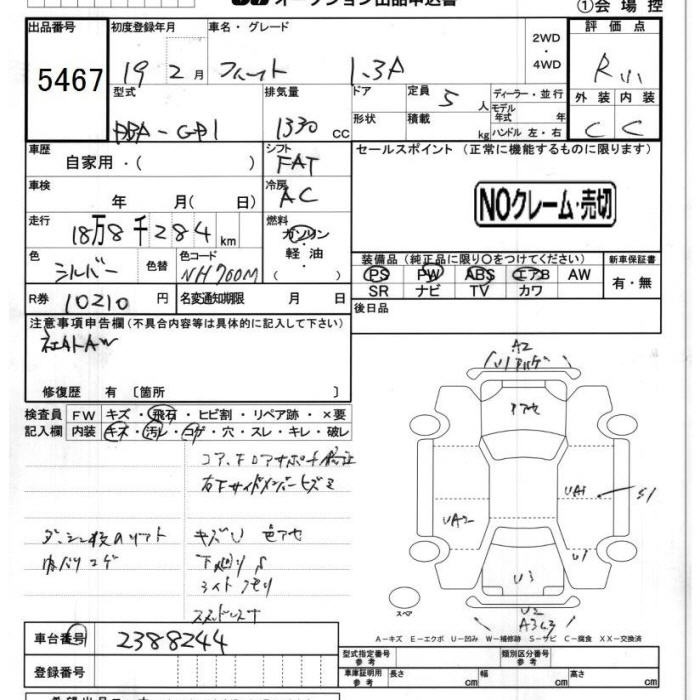 オークション出品申込書
①会場控
出品番号 初度登録年月 車名・グレード 2WD・4WD 評価点
5467 19 2月 フィット 1.3A R
型式 排気量 ドア 定員 5人 ディーラー・並行 外装 内装
DBA-GD1 1330cc 形状 積載 kg モデル年式 年 ハンドル 左・右 C C
車歴 シフト セールスポイント (正常に機能するものに限ります)
自家用・( ) FAT
車検 冷房 NOクレーム・売切
年 月( 日) AC
走行 燃料
18万8千284km ガソリン・軽油・( )
色 色替 色コード 装備品 (純正品に限り○をつけてください) 新車保証書
シルバー NH700M PS PW ABS エアB AW 有・無
SR ナビ TV カワ
R券 10210円 名変通知期限 月 日 後日品
注意事項申告欄 (不具合内容等は具体的に記入して下さい)
社外AW
修復歴 有 〔箇所 〕
検査員 FW キズ・飛石・ヒビ割・リペア跡・×要
記入欄 内装 キズ・汚レ・コゲ・穴・スレ・キレ・破レ
コア、
右Fサイドメンバーヒズミ
キズU 色アセ
内バリコゲ 下廻りS
ライトクモリ
A2
U1
アアセ
UA1
S1
UA2
U1
U3
スペア
U2
A3
A-キズ E-エクボ U-凹み W-補修跡 S-サビ C-腐食 XX-交換済
車台番号 2388244 型式指定番号 参考 類別区分番号 参考
登録番号 車庫証明用 参考 長さ cm 幅 cm 高さ cm
希望出品コーナー